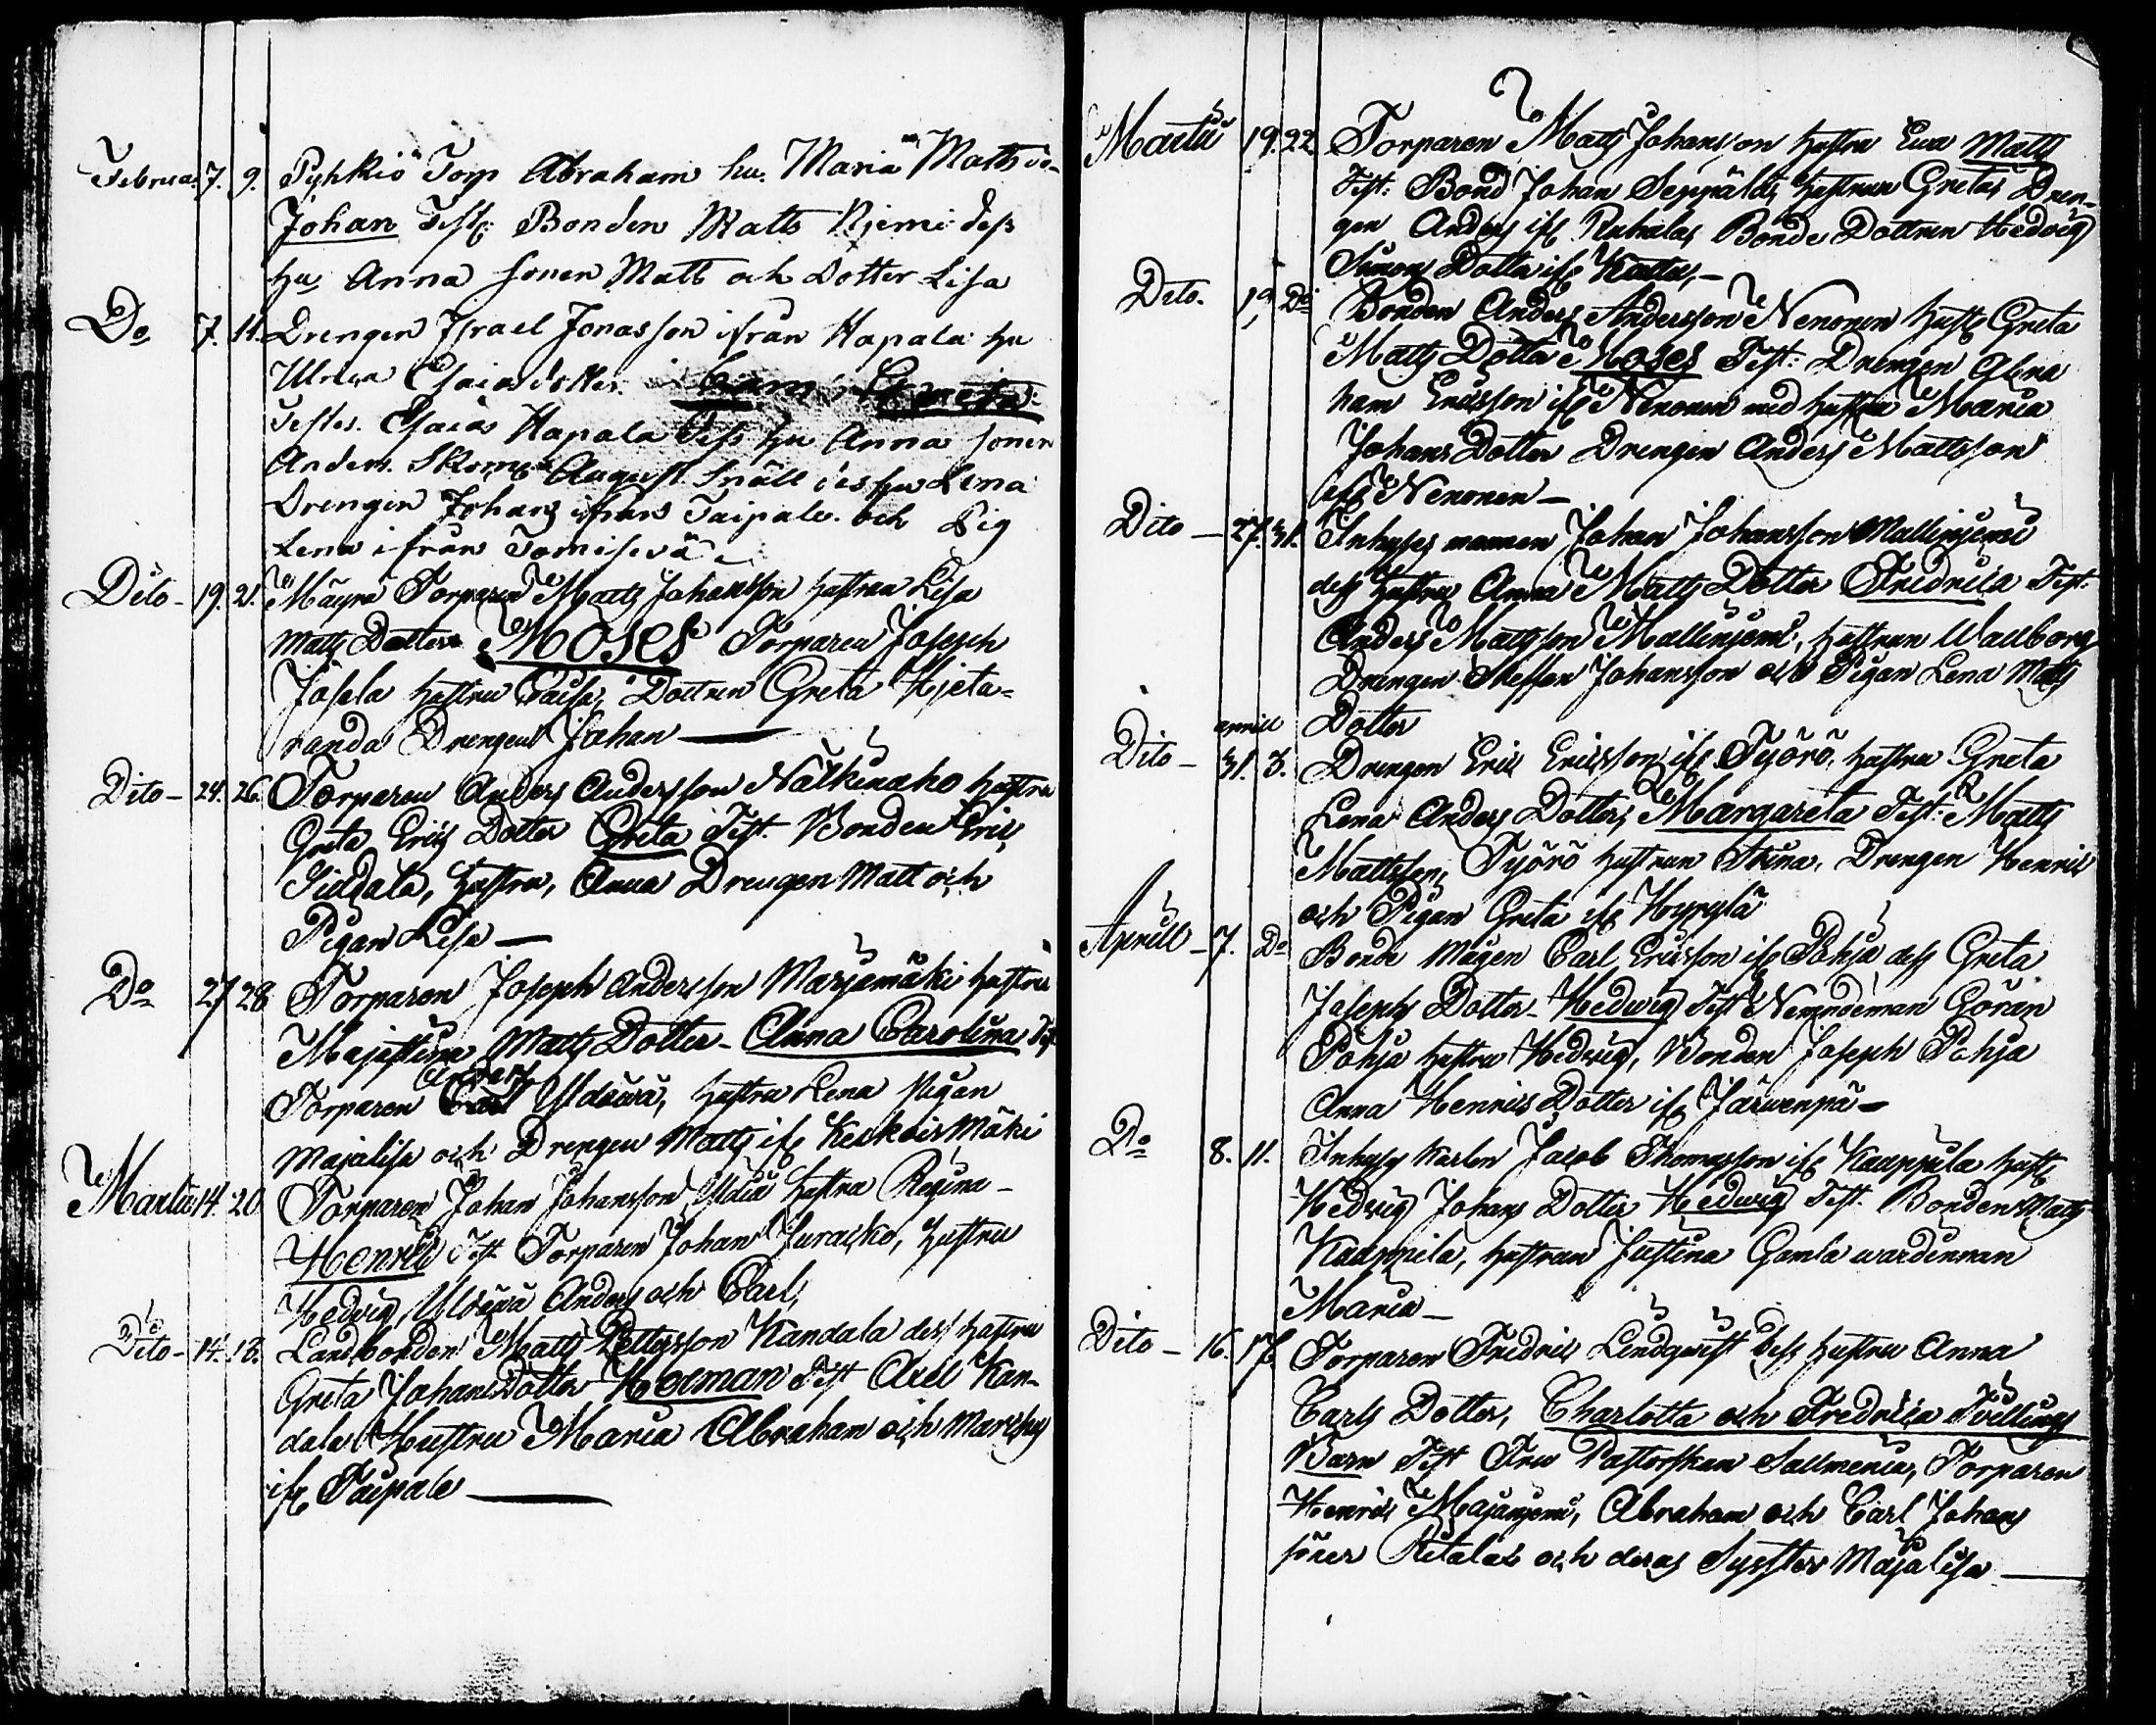 Februa. 7. 9. Pyhkiö Torp Abraham hu. Maria Mattsdo-
Johan Test: Bonden Matts Njemi dess
hu Anna sonen Matts och Dotter Lisa
Do 7. 11. Drengen Israel Jonasson ifrån Hapala hu
Ulrica Esaiasdotter. Greta
Testes. Esaias Hapala dess hu Anna sonen
Anders. Skom: August Snäll des hu Lena
Drengen Johans ifrån Taipale. och Pig
Lena ifrån Tomisevä
Dito - 19. 21. Mäyrä Torparen Matts Johansson hustrun Lisa
Matts Dotter Moses Torparen Joseph
Josela hustru Caisa, Dottren Greta Hjeta-
randa Drengen Johan
Dito - 24. 26. Torparen Anders Andersson Nälkinaho hustru
Greta Erics Dotter Greta Test. Bonden Eric
hustru, Anna Drengen Matt och
Pigan Lisa
Do 27 28 Torparen Joseph Andersson Marjamäki hustru
Majastina Matts Dotter - Anna Carolina Test
Torparen Anders hustru Lena Pigan
Majalisa och Drengen Matts if: Keskois Mäki
Martii 14. 20 Torparen Johan Johansson hustru Regina -
Henric Test Torparen Johan hustru
Hedvig, Anders och Carl,
Dito - 14. 18. Landbonden Matts Pettersson Kandala dess hustru
Greta Johans Dotter Herman Test Axel Kan-
dala Hustru Maria Abraham och
if: Taipale
Martii 19. 22. Torparen Matts Johansson hustru Eva Matts
Test: Bond Johan Seppälä, hustrun Greta, Dren-
gen Anders if: Ruhala, Bonde Dottren Hedvig
Simons Dotter if:
Dito. 19 Do Bonden Anders Andersson Nenonen hust: Greta
Matts Dotter Moses Test: Drengen Abra
ham Ericsson if: Nenonen med hustru Maria
Johans Dotter Drengen Anders Mattsson
if: Nenonen -
Dito - 27. 31. Inhyses mannen Johan Johansson Mallinjemi
dess hustru Anna Matts Dotter Fredrica Test.
Anders Mattsson Mallinjemi, hustrun Wallborg
Drengen Steffen Johansson och Pigan Lena Matts
Dotter
aprill
Dito - 31. 3. Drengen Eric Ericsson if: Työrö, hustru Greta
Lena Anders Dotter, Margareta Test: Matts
Mattsson, Työrö hustrun Stina, Drengen Henric
och Pigan Greta if: Hyrylä
Aprill - 7. Do Bonde Mågen Carl Ericsson if: Pohja dess Greta
Josephs Dotter - Hedwig Test Nemndeman Göran
Pohja hustru Hedvig, Bonden Joseph Pohja
Anna Henrics Dotter if: Järwenpä -
Do 8. 11. Inhyses karlen Jacob Thomasson if: Kaappila hust:
Hedvig Johans Dotter Hedwig Test. Bonden Matts
Kaappila, hustrun Justina Gamla wardinnan
Maria -
Dito - 16. 17. Torparen Fredric Lindqwist dess hustru Anna
Carls Dotter, Charlotta och Fredrica Tvillings
Barn Test Fru Pastorskan Sallmenia, Torparen
Henric Majanjemi, Abraham och Carl Johans
söner Ritala och deras Syster Maja Lisa